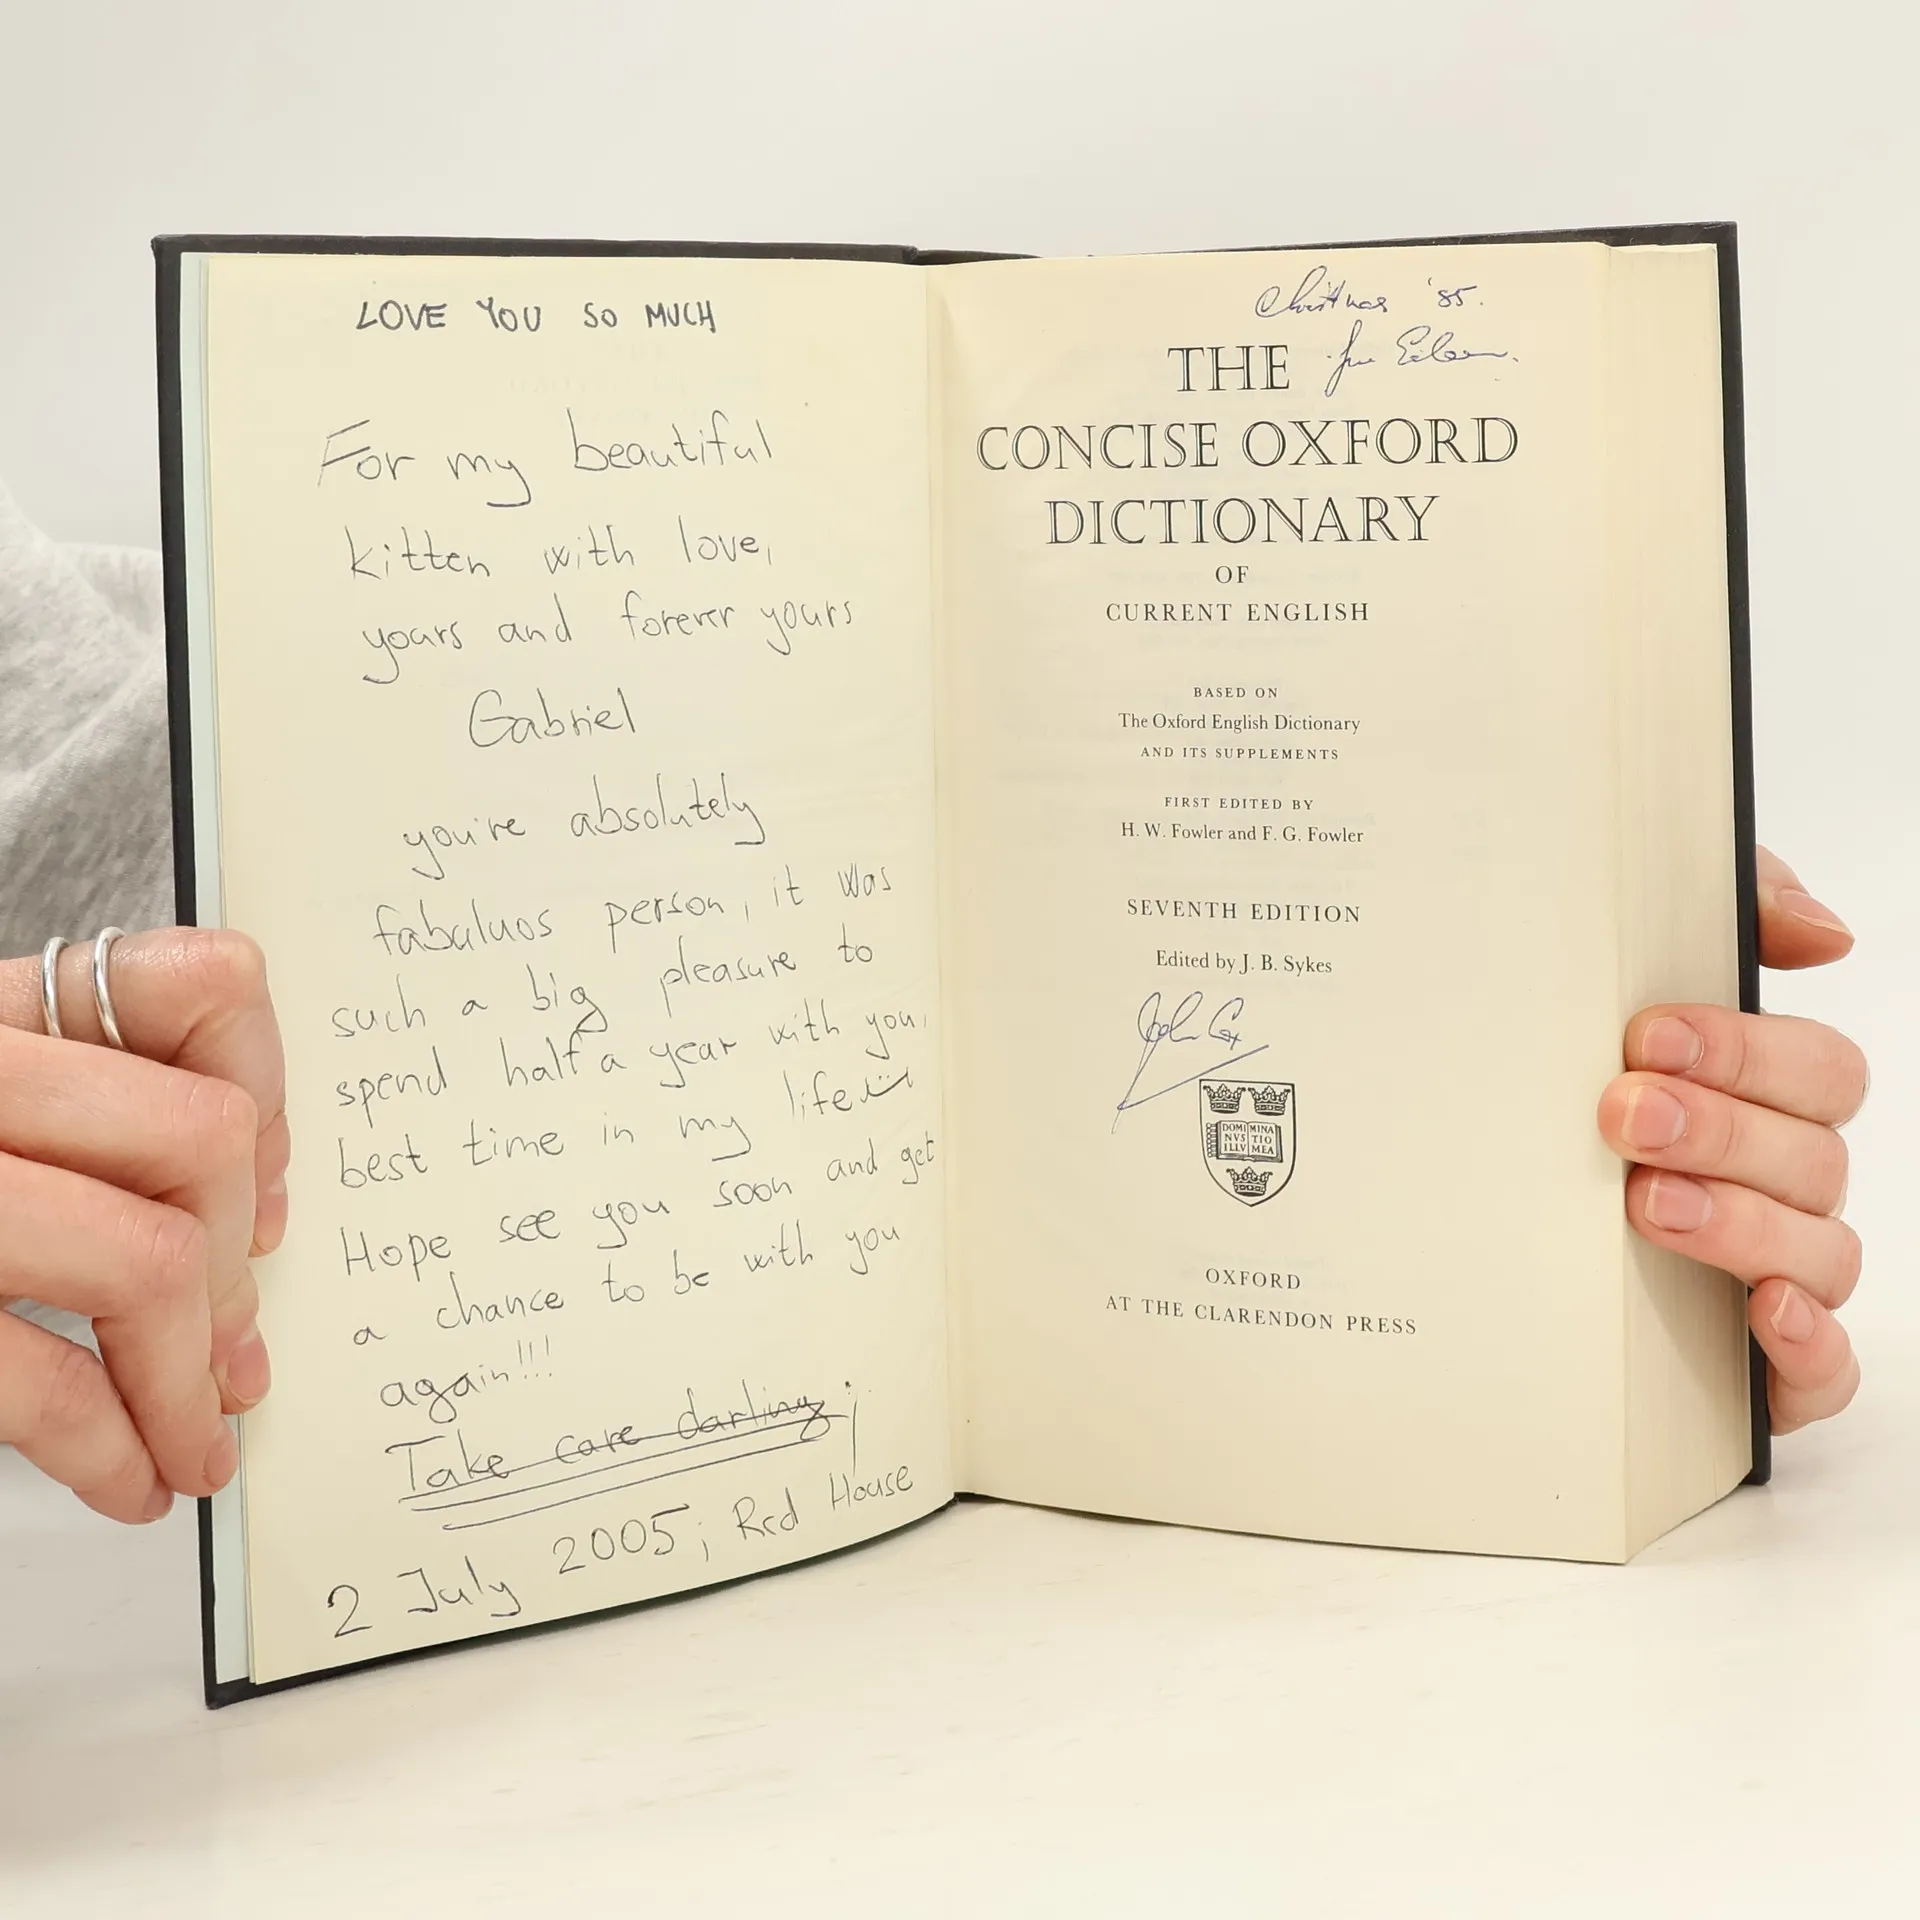 LOVE YOU SO MUCH
For my beautiful
kitten with love,
yours and forever yours
Gabriel
you're absolutely
fabuluos person, it was
such a big pleasure to
spend half a year with you,
best time in my life
Hope see you soon and get
a chance to be with you
again!!!
Take care darling
2 July 2005; Red House
Christmas '85.
from Eileen.
THE
CONCISE OXFORD
DICTIONARY
OF
CURRENT ENGLISH
BASED ON
The Oxford English Dictionary
AND ITS SUPPLEMENTS
FIRST EDITED BY
H. W. Fowler and F. G. Fowler
SEVENTH EDITION
Edited by J. B. Sykes
John Cox
DOMI MINA
NVS TIO
ILLV MEA
OXFORD
AT THE CLARENDON PRESS